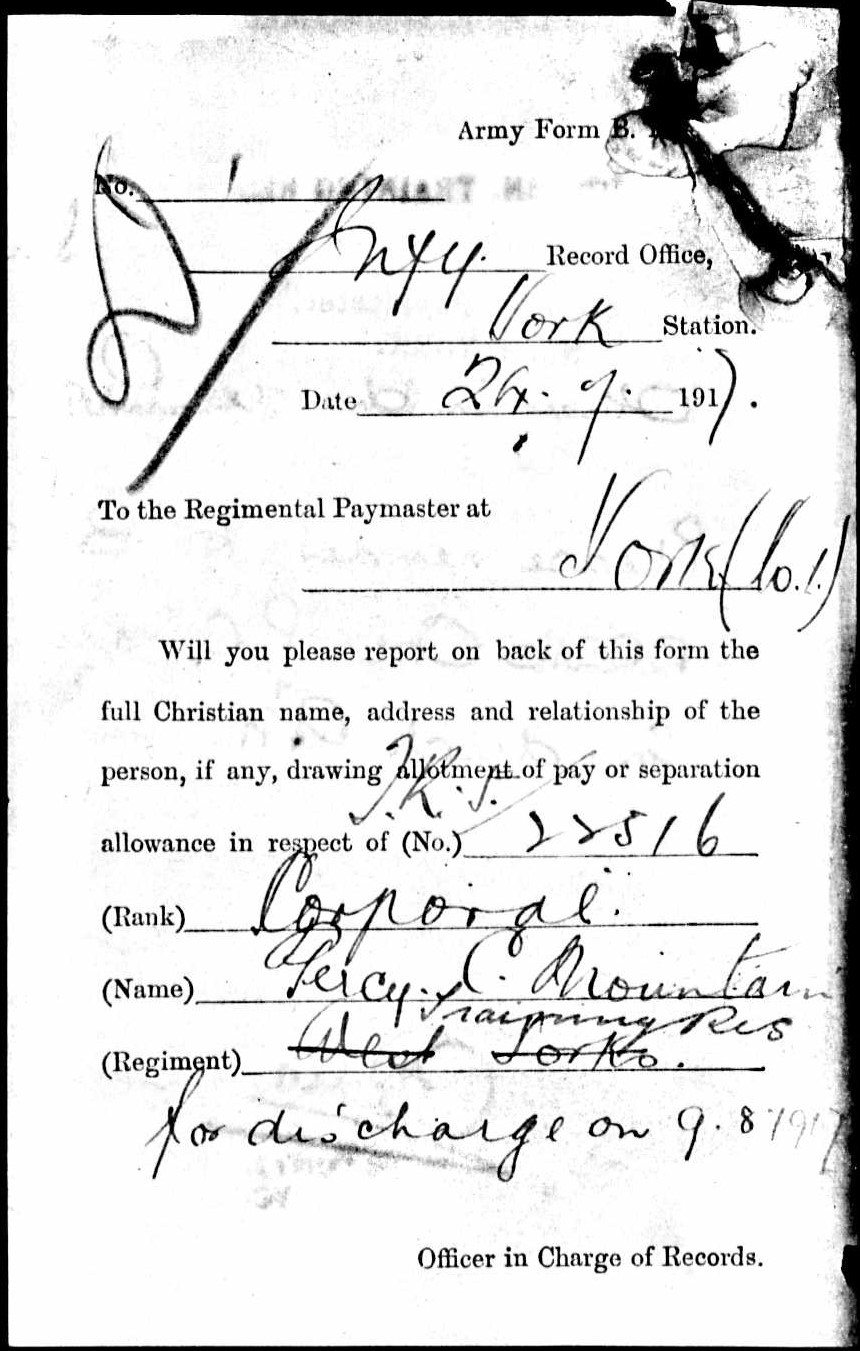 Army Form B.
No.
Infy. Record Office,
York Station.
Date 24. 7. 1917.
To the Regimental Paymaster at
York (No. 1)
Will you please report on back of this form the
full Christian name, address and relationship of the
person, if any, drawing allotment of pay or separation
T.R.5.
allowance in respect of (No.) 22516
(Rank) Corporal.
(Name) Percy. C. Mountain
Training Res
(Regiment) West Yorks.
for discharge on 9. 8 1917
Officer in Charge of Records.